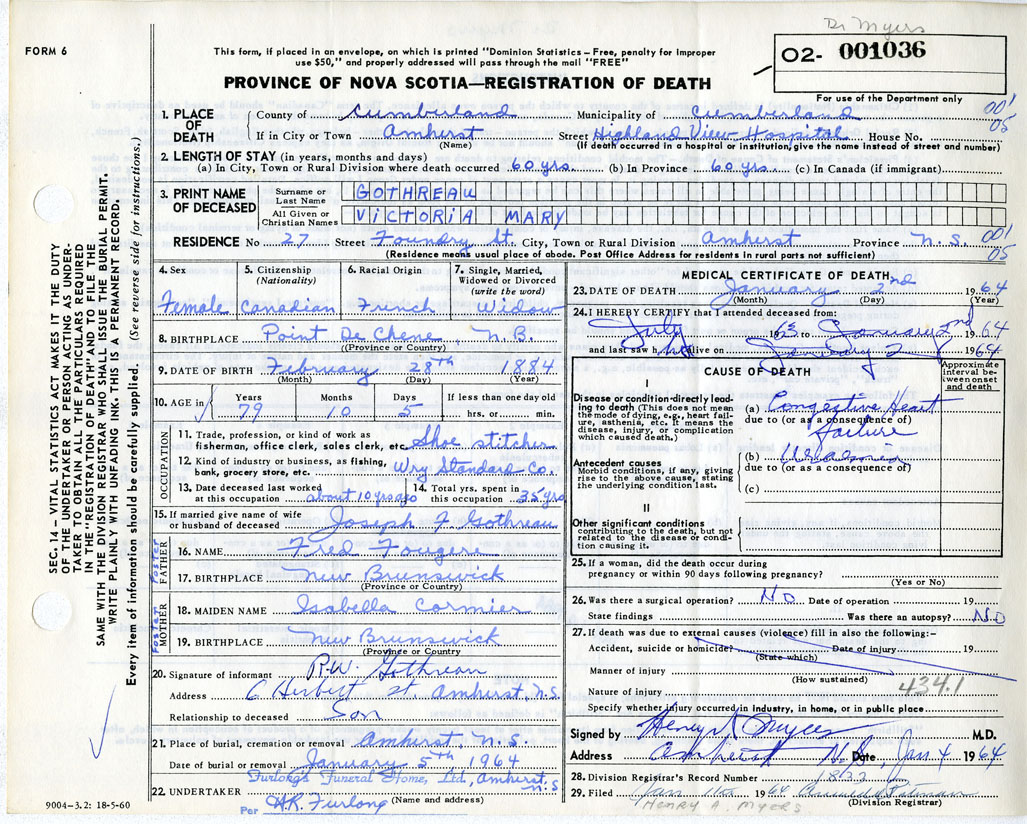 Dr Myers
FORM 6
This form, if placed in an envelope, on which is printed "Dominion Statistics – Free, penalty for improper
use $50," and properly addressed will pass through the mail "FREE"
O2- 001036
PROVINCE OF NOVA SCOTIA—REGISTRATION OF DEATH
For use of the Department only
001
05
1. PLACE OF DEATH { County of Cumberland Municipality of Cumberland
If in City or Town Amherst Street Highland View Hospital House No.
(Name) (If death occurred in a hospital or institution, give the name instead of street and number)
2. LENGTH OF STAY (in years, months and days)
(a) In City, Town or Rural Division where death occurred 60 yrs. (b) In Province 60 yrs. (c) In Canada (if immigrant)
3. PRINT NAME OF DECEASED
Surname or Last Name GOTHREAU
All Given or Christian Names VICTORIA MARY
RESIDENCE No 27 Street Foundry St. City, Town or Rural Division Amherst Province N.S. 001
05
(Residence means usual place of abode. Post Office Address for residents in rural parts not sufficient)
SEC. 14 – VITAL STATISTICS ACT MAKES IT THE DUTY
OF THE UNDERTAKER OR PERSON ACTING AS UNDER-
TAKER TO OBTAIN ALL THE PARTICULARS REQUIRED
IN THE "REGISTRATION OF DEATH" AND TO FILE THE
SAME WITH THE DIVISION REGISTRAR WHO SHALL ISSUE THE BURIAL PERMIT.
WRITE PLAINLY WITH UNFADING INK. THIS IS A PERMANENT RECORD.
Every item of information should be carefully supplied. (See reverse side for instructions.)
4. Sex 5. Citizenship (Nationality) 6. Racial Origin 7. Single, Married, Widowed or Divorced (write the word)
Female Canadian French Widow
8. BIRTHPLACE Point De Chene, N.B.
(Province or Country)
9. DATE OF BIRTH February 28th 1884
(Month) (Day) (Year)
10. AGE in Years Months Days If less than one day old
79 10 5 hrs. or min.
OCCUPATION
11. Trade, profession or kind of work as
fisherman, office clerk, sales clerk, etc. Shoe stitcher
12. Kind of industry or business, as fishing,
bank, grocery store, etc. Wry Standard Co.
13. Date deceased last worked
at this occupation about 10 yrs ago
14. Total yrs. spent in
this occupation 35 yrs
15. If married give name of wife
or husband of deceased Joseph F. Gothreau
Foster FATHER
16. NAME Fred Fougere
17. BIRTHPLACE New Brunswick
(Province or Country)
Foster MOTHER
18. MAIDEN NAME Isabella Cormier
19. BIRTHPLACE New Brunswick
(Province or Country)
20. Signature of informant P.W. Gothreau
Address 6 Herbert St Amherst, N.S.
Relationship to deceased Son
21. Place of burial, cremation or removal Amherst, N.S.
Date of burial or removal January 5th 1964
Furlong's Funeral Home, Ltd., Amherst, N.S
22. UNDERTAKER (Name and address)
Per H.R. Furlong
9004–3.2: 18-5-60
MEDICAL CERTIFICATE OF DEATH
23. DATE OF DEATH January 2nd 1964
(Month) (Day) (Year)
24. I HEREBY CERTIFY that I attended deceased from:
July 1963 to January 2nd 1964
and last saw h alive on January 2 1964
CAUSE OF DEATH
Approximate interval between onset and death
I
Disease or condition directly lead-
ing to death (This does not mean
the mode of dying, e.g., heart fail-
ure, asthenia, etc. It means the
disease, injury, or complication
which caused death.)
(a) Congestive Heart
due to (or as a consequence of)
failure
Antecedent causes
Morbid conditions, if any, giving
rise to the above cause, stating
the underlying condition last.
(b) Uraemia
due to (or as a consequence of)
(c)
II
Other significant conditions
contributing to the death, but not
related to the disease or condi-
tion causing it.
25. If a woman, did the death occur during
pregnancy or within 90 days following pregnancy?
(Yes or No)
26. Was there a surgical operation? No Date of operation 19
State findings Was there an autopsy? No
27. If death was due to external causes (violence) fill in also the following:–
Accident, suicide or homicide? Date of injury 19
(State which)
Manner of injury
(How sustained)
Nature of injury 434.1
Specify whether injury occurred in industry, in home, or in public place
Signed by Henry A Myers M.D.
Address Amherst N.S Date Jan 4 1964
28. Division Registrar's Record Number 1833
29. Filed Jan 11th 1964
(Division Registrar)
HENRY A. MYERS